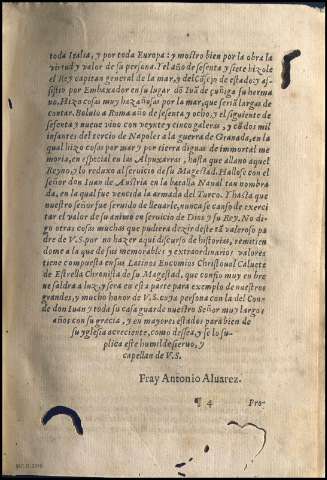 toda Italia, y por toda Europa: y mostro bien por la obra la
virtud y valor de su persona. Y el año de sesenta y siete hizole
el Rey capitan general de la mar, y del Cõsejo de estado: y as-
sistio por Embaxador en su lugar dõ Iuã de çuñiga su herma
no. Hizo cosas muy hazañosas por la mar, que seriã largas de
contar. Boluio a Roma año de sesenta y ocho, y el siguiente de
sesenta y nueue vino con veynte y cinco galeras, y cõ dos mil
infantes del tercio de Napoles a la guerra de Granada, en la
qual hizo cosas por mar y por tierra dignas de immortal me
moria, en especial en las Alpuxarras, hasta que allano aquel
Reyno, y lo reduxo al seruicio de su Magestad. Hallose con el
señor don Iuan de Austria en la batalla Naual tan nombra
da, en la qual fue vencida la armada del Turco. Y hasta que
nuestro señor fue seruido de lleuarle, nunca se canso de exerci
tar el valor de su animo en seruicio de Dios y su Rey. No di-
go otras cosas muchas que pudiera dezir deste tã valeroso pa
dre de V.S. por no hazer aqui discurso de historias, remitien
dome a la que de sus memorables y extraordinarios valores
tiene compuesta en sus Latinos Encomios Christoual Caluete
de Estrella Chronista de su Magestad, que confio muy en bre
ue saldra a luz, y sera en esta parte para exemplo de nuestros
grandes, y mucho honor de V.S. cuya persona con la del Con-
de don Iuan y toda su casa guarde nuestro Señor muy largos
años con su gracia, y en mayores estados para bien de
su yglesia acreciente, como dessea, y se lo su-
plica este humilde sieruo, y
capellan de V.S.
Fray Antonio Aluarez.
¶ 4 Pro-